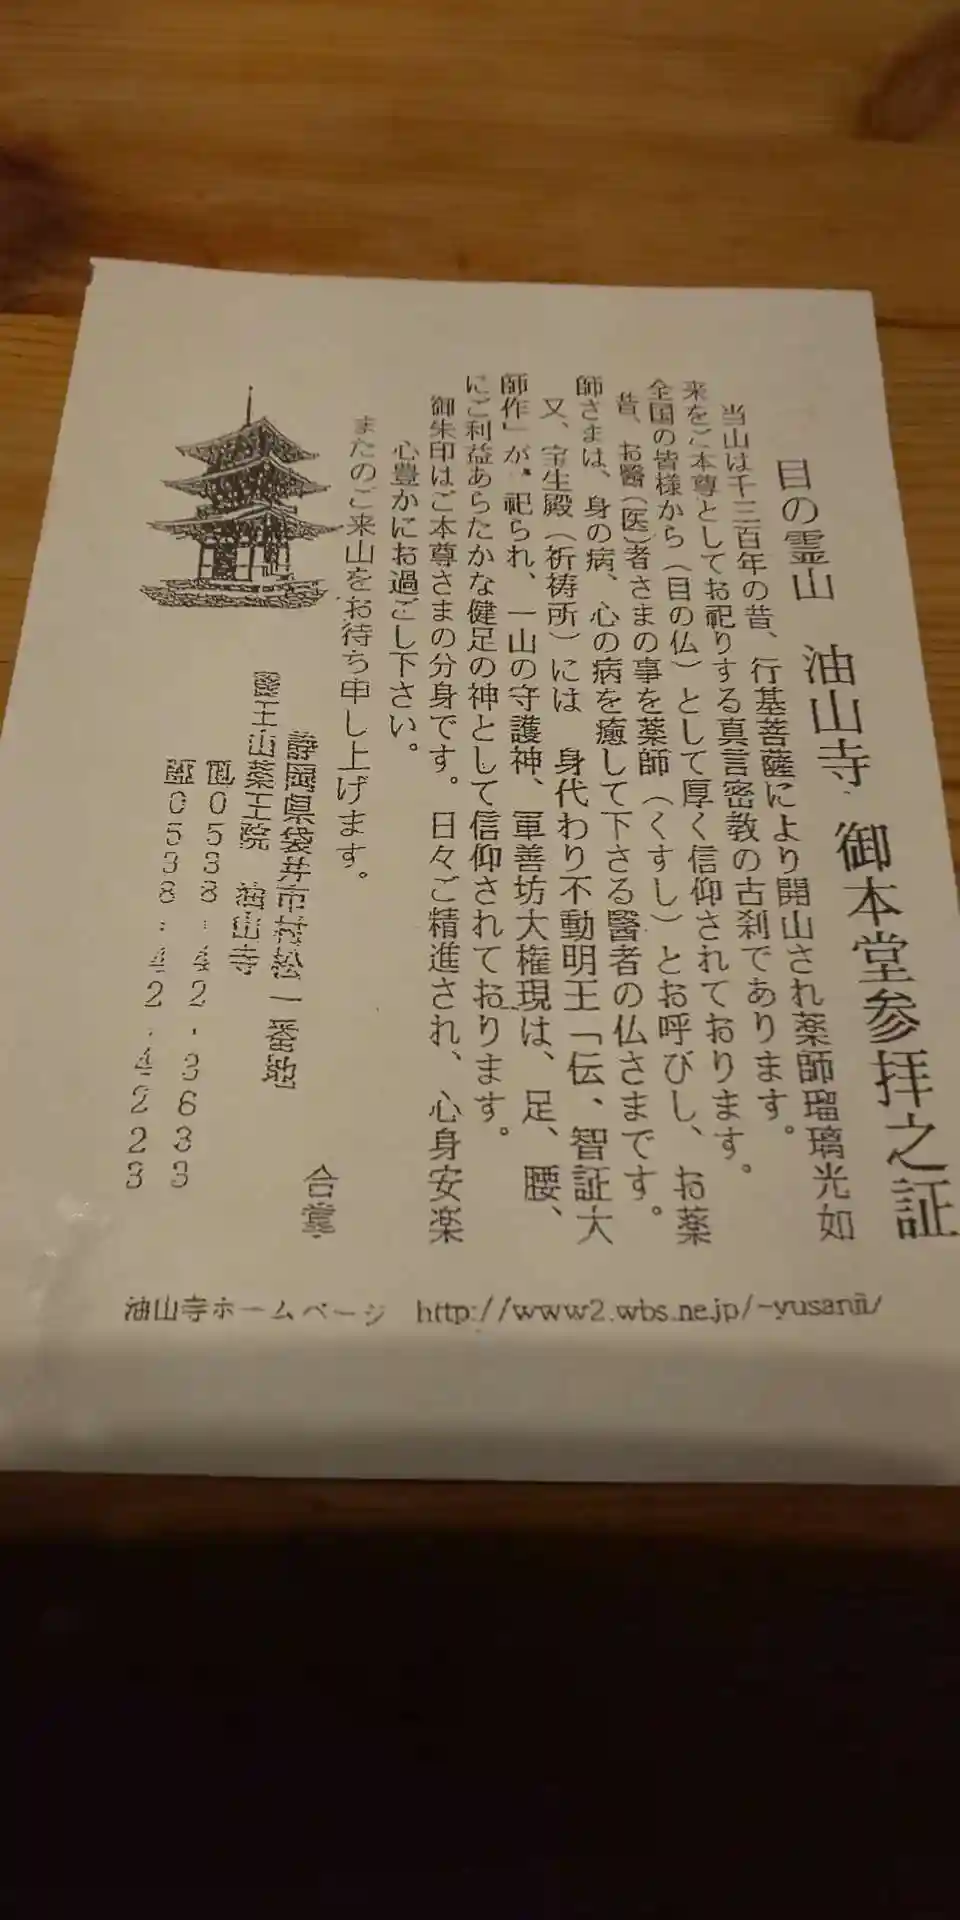 目の霊山 油山寺 御本堂参拝之証
当山は千三百年の昔、行基菩薩により開山され薬師瑠璃光如
来をご本尊としてお祀りする真言密教の古刹であります。
全国の皆様から（目の仏）として厚く信仰されております。
昔、お醫（医）者さまの事を薬師（くすし）とお呼びし、お薬
師さまは、身の病、心の病を癒して下さる醫者の仏さまです。
又、宝生殿（祈祷所）には 身代わり不動明王「伝、智証大
師作」が、祀られ、一山の守護神、軍善坊大権現は、足、腰、
にご利益あらたかな健足の神として信仰されております。
御朱印はご本尊さまの分身です。日々ご精進され、心身安楽
心豊かにお過ごし下さい。
またのご来山をお待ち申し上げます。
合掌
静岡県袋井市村松一番地
醫王山薬王院 油山寺
0538-42-3633
0538-42-4223
油山寺ホームページ http://www2.wbs.ne.jp/~yusanji/